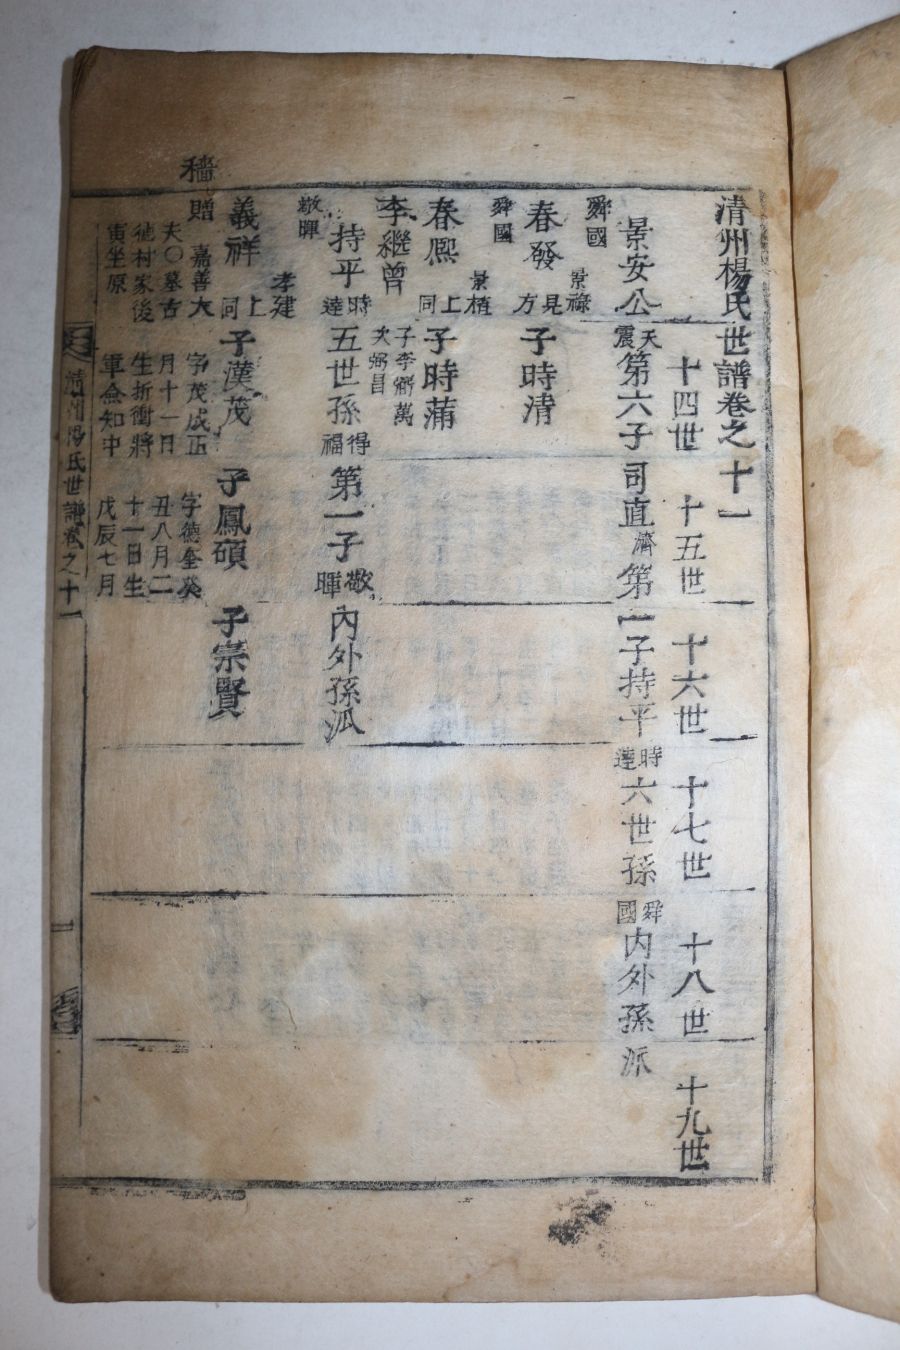 清州楊氏世譜卷之十一
十四世 十五世 十六世 十七世 十八世 十九世
景安公天震第六子司直濟第一子持平時達六世孫舜國內外孫派
舜國
景祿
春發
見方
子時清
舜國
景楨
春熙
上同
子時蒲
李繼曾
子李弼萬
次弼昌
持平時達五世孫得福第一子敬暉內外孫派
敬暉
孝建
義祥
上同
子漢茂 子鳳碩 子崇賢
穡
贈嘉善大
夫〇墓古
他村家後
寅坐原
字茂成正
月十一日
生折衝將
軍僉知中
字德奎癸
丑八月二
十一日生
戊辰七月
清州楊氏世譜卷之十一
一